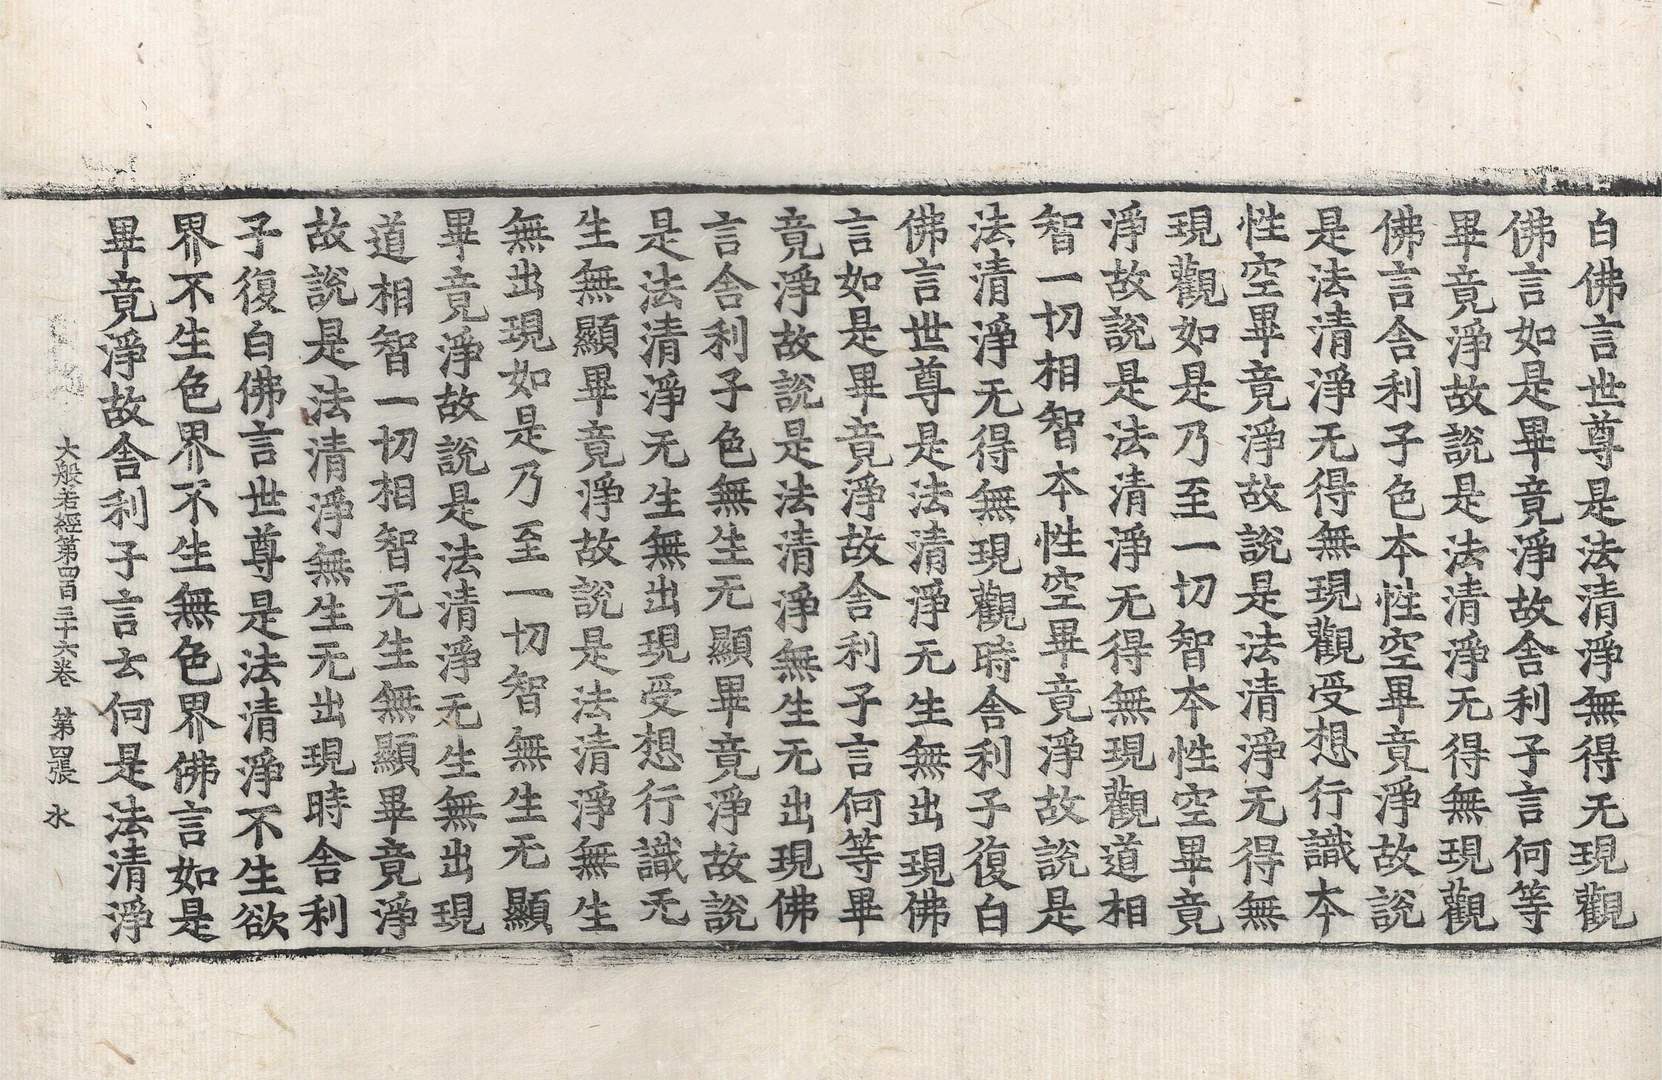 白佛言世尊是法清淨無得无現觀
佛言如是畢竟淨故舎利子言何等
畢竟淨故說是法清淨无得無現觀
佛言舎利子色本性空畢竟淨故說
是法清淨无得無現觀受想行識本
性空畢竟淨故說是法清淨无得無
現觀如是乃至一切智本性空畢竟
淨故說是法清淨无得無現觀道相
智一切相智本性空畢竟淨故說是
法清淨无得無現觀時舎利子復白
佛言世尊是法清淨无生無出現佛
言如是畢竟淨故舎利子言何等畢
竟淨故說是法清淨無生无出現佛
言舎利子色無生无顯畢竟淨故說
是法清淨无生無出現受想行識无
生無顯畢竟淨故說是法清淨無生
無出現如是乃至一切智無生无顯
畢竟淨故說是法清淨无生無出現
道相智一切相智无生無顯畢竟淨
故說是法清淨無生无出現時舎利
子復白佛言世尊是法清淨不生欲
界不生色界不生無色界佛言如是
畢竟淨故舎利子言云何是法清淨
大般若經第四百三十六卷 第四張 水